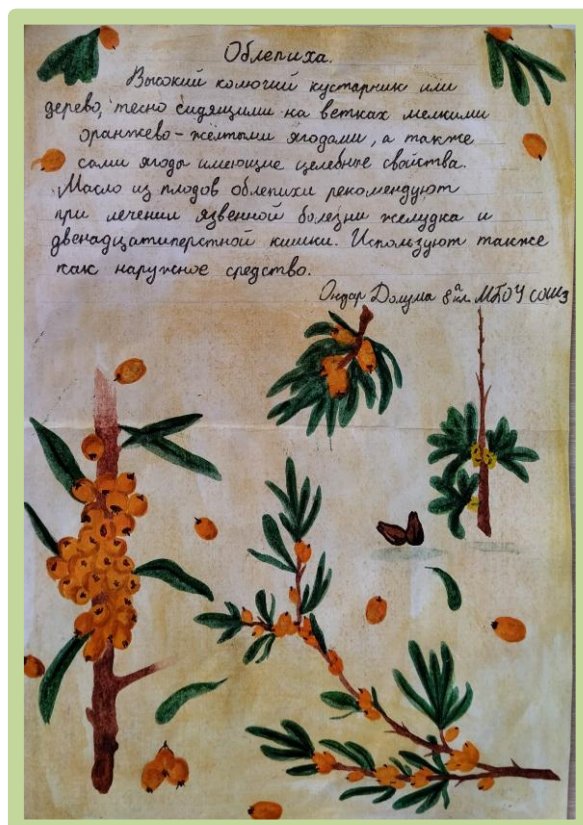 Облепиха.
Высокий колючий кустарник или
дерево, тесно сидящими на ветках мелкими
оранжево-жёлтыми ягодами, а также
сами ягоды имеющие целебные свойства.
Масло из плодов облепихи рекомендуют
при лечении язвенной болезни желудка и
двенадцатиперстной кишки. Используют также
как наружное средство.
Ондар Долума 8а кл. МБОУ СОШ3